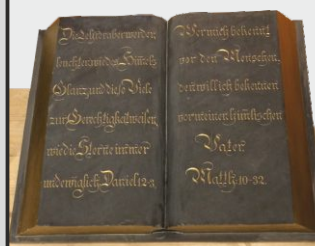 Die Lehrer aber werden
leuchten wie des Himmels
Glanz und die so Viele
zur Gerechtigkeit weisen,
wie die Sterne immer
und ewiglich. Daniel 12.3.
Wer mich bekennt
vor den Menschen,
den will ich bekennen
vor meinem himlischen
Vater.
Matth. 10-32.